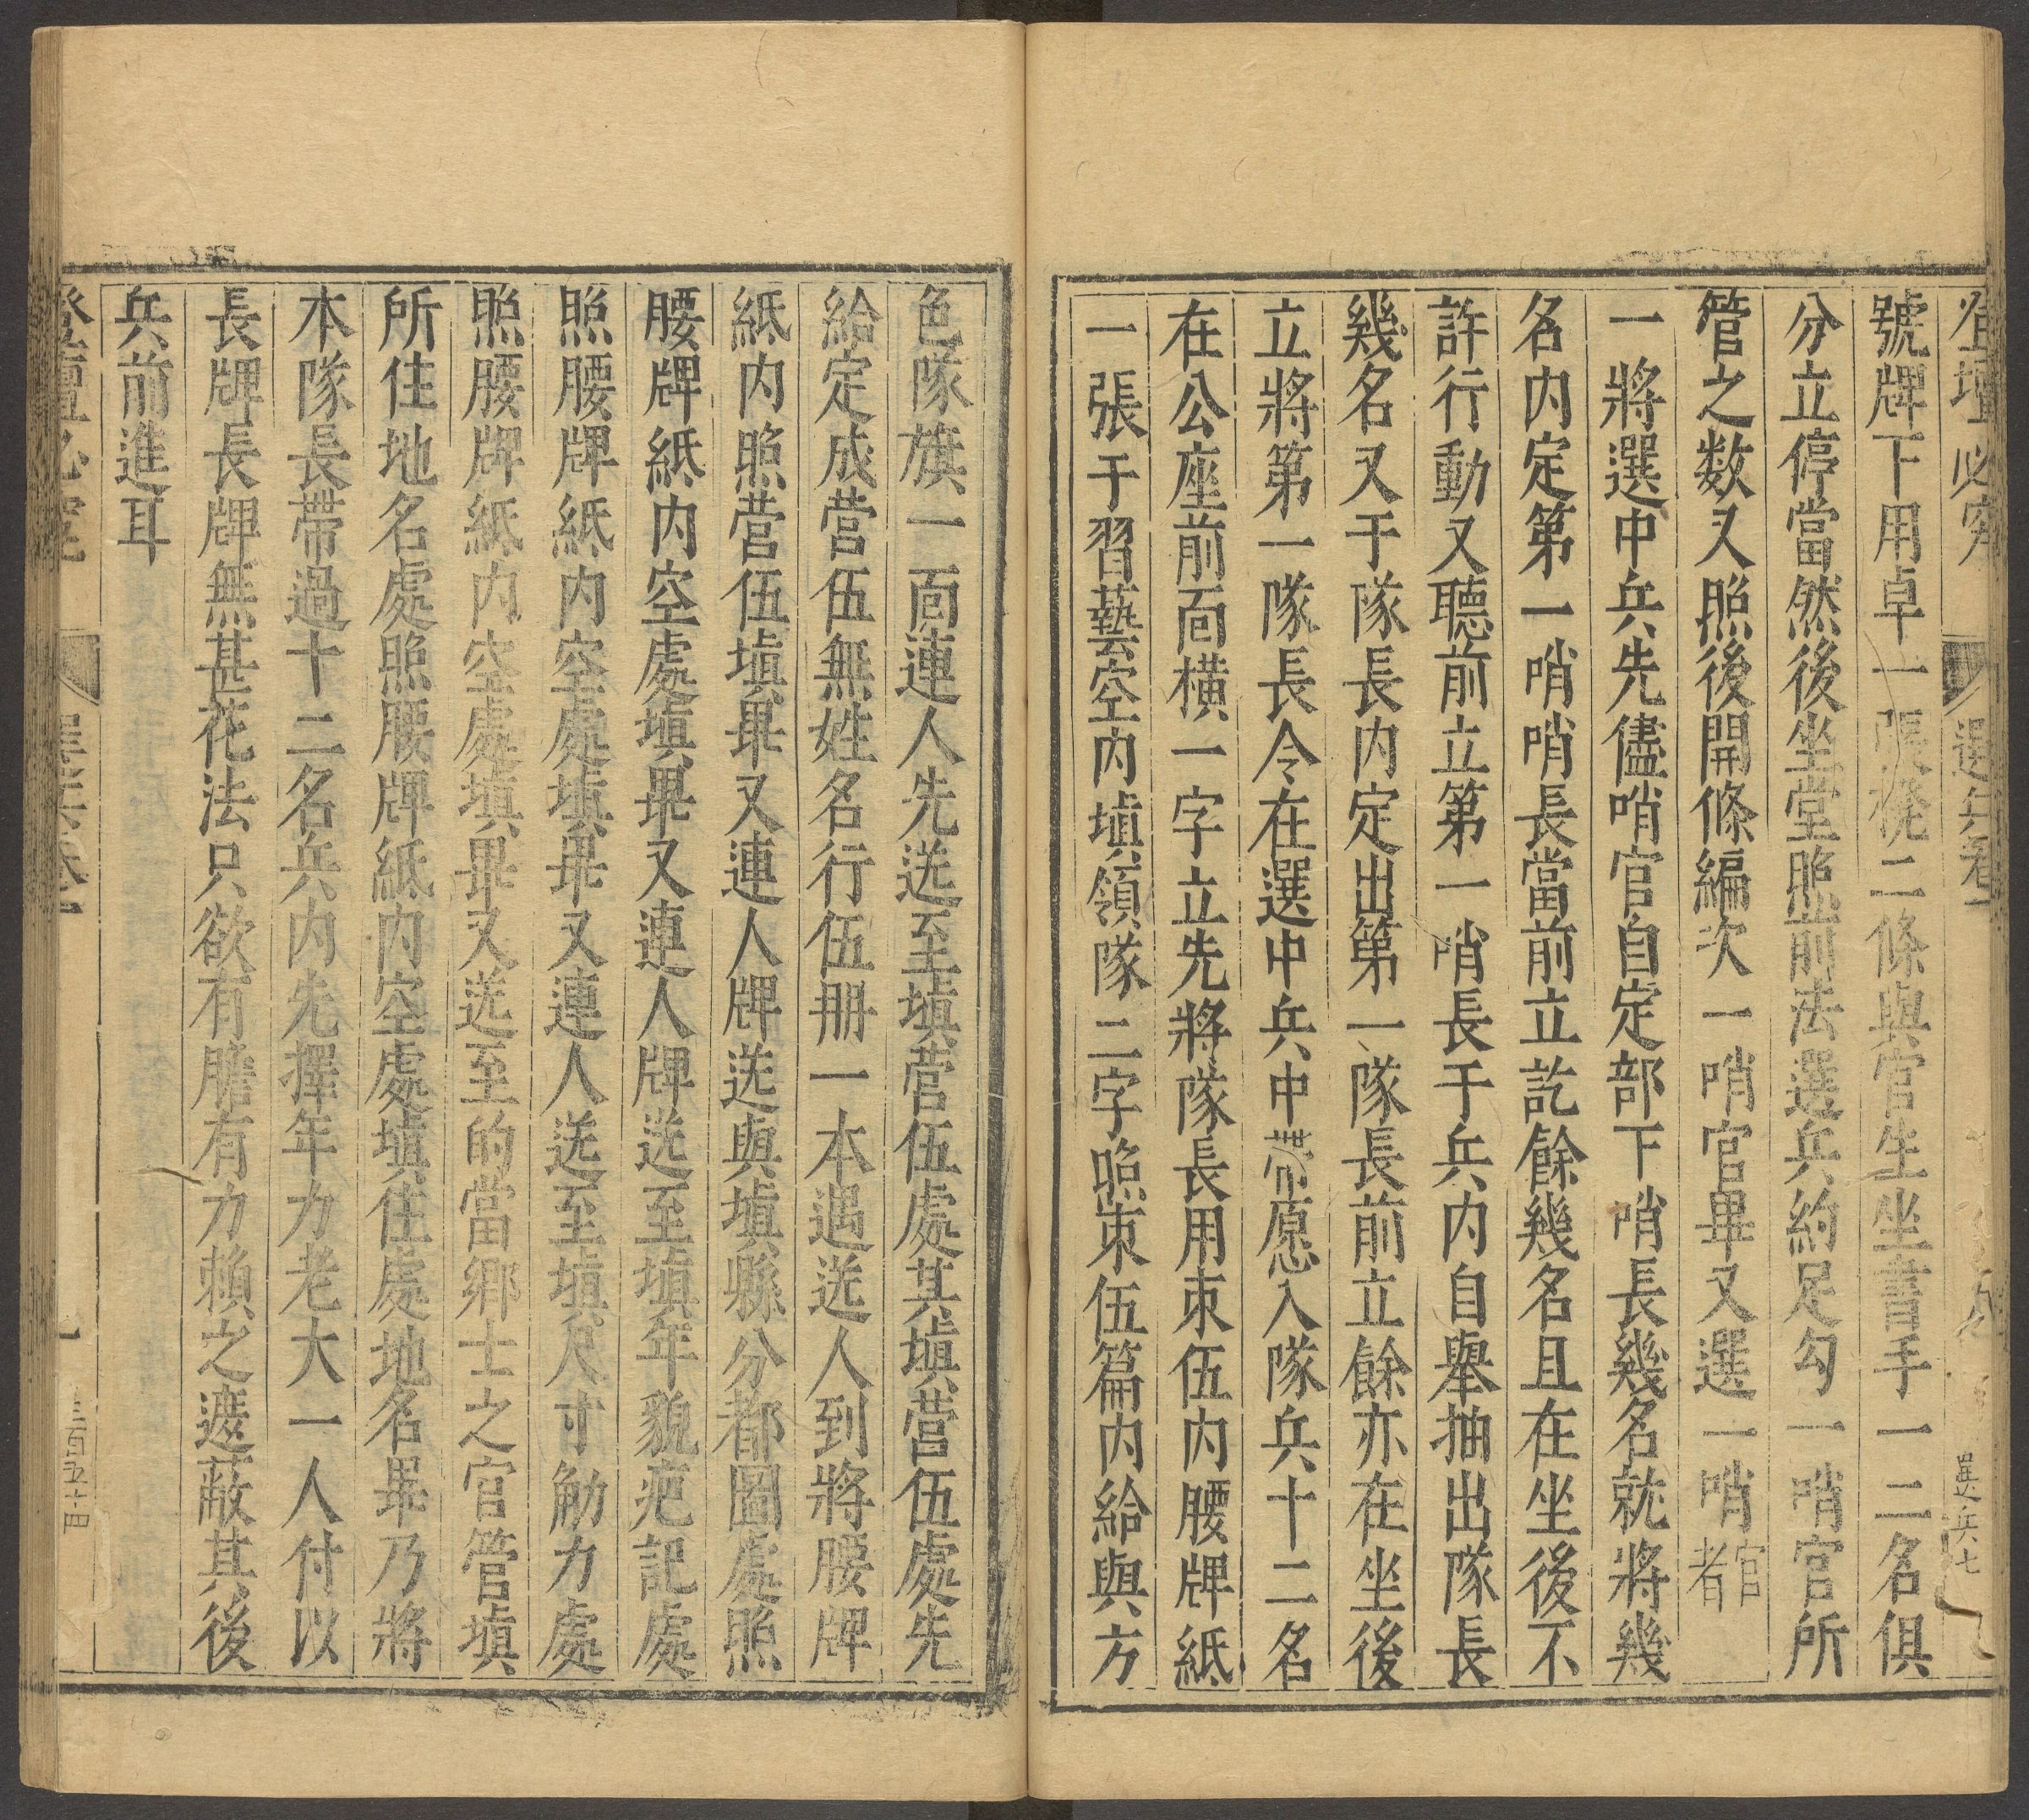 登壇必究 選兵卷一
選兵七
號牌下用卓一張櫈二條與官生坐書手一二名俱
分立停當然後坐堂照前法選兵約足勾一哨官所
管之数又照後開條編次一哨官畢又選一哨官者
一將選中兵先儘哨官自定部下哨長幾名就將幾
名內定第一哨哨長當前立訖餘幾名且在坐後不
許行動又聽前立第一哨長于兵內自舉抽出隊長
幾名又于隊長內定出第一隊長前立餘亦在坐後
立將第一隊長令在選中兵中帶愿入隊兵十二名
在公座前面橫一字立先將隊長用束伍內腰牌紙
一張于習藝空內塡領隊二字炤束伍篇內給與方
色隊旗一面連人先送至塡营伍處其塡营伍處先
給定成营伍無姓名行伍册一本遇送人到將腰牌
紙內照营伍塡畢又連人牌送與塡縣分都圖處照
腰牌紙內空處塡畢又連人牌送至塡年貌疤記處
照腰牌紙內空處塡畢又連人送至塡尺寸觔力處
照腰牌紙內空處塡畢又送至的當鄉士之官管塡
所住地名處照腰牌紙內空處塡住處地名畢乃將
本隊長帶過十二名兵內先擇年力老大一人付以
長牌長牌無甚花法只欲有膽有力賴之遮蔽其後
兵前進耳
登壇必究 選兵卷一
三百五十四